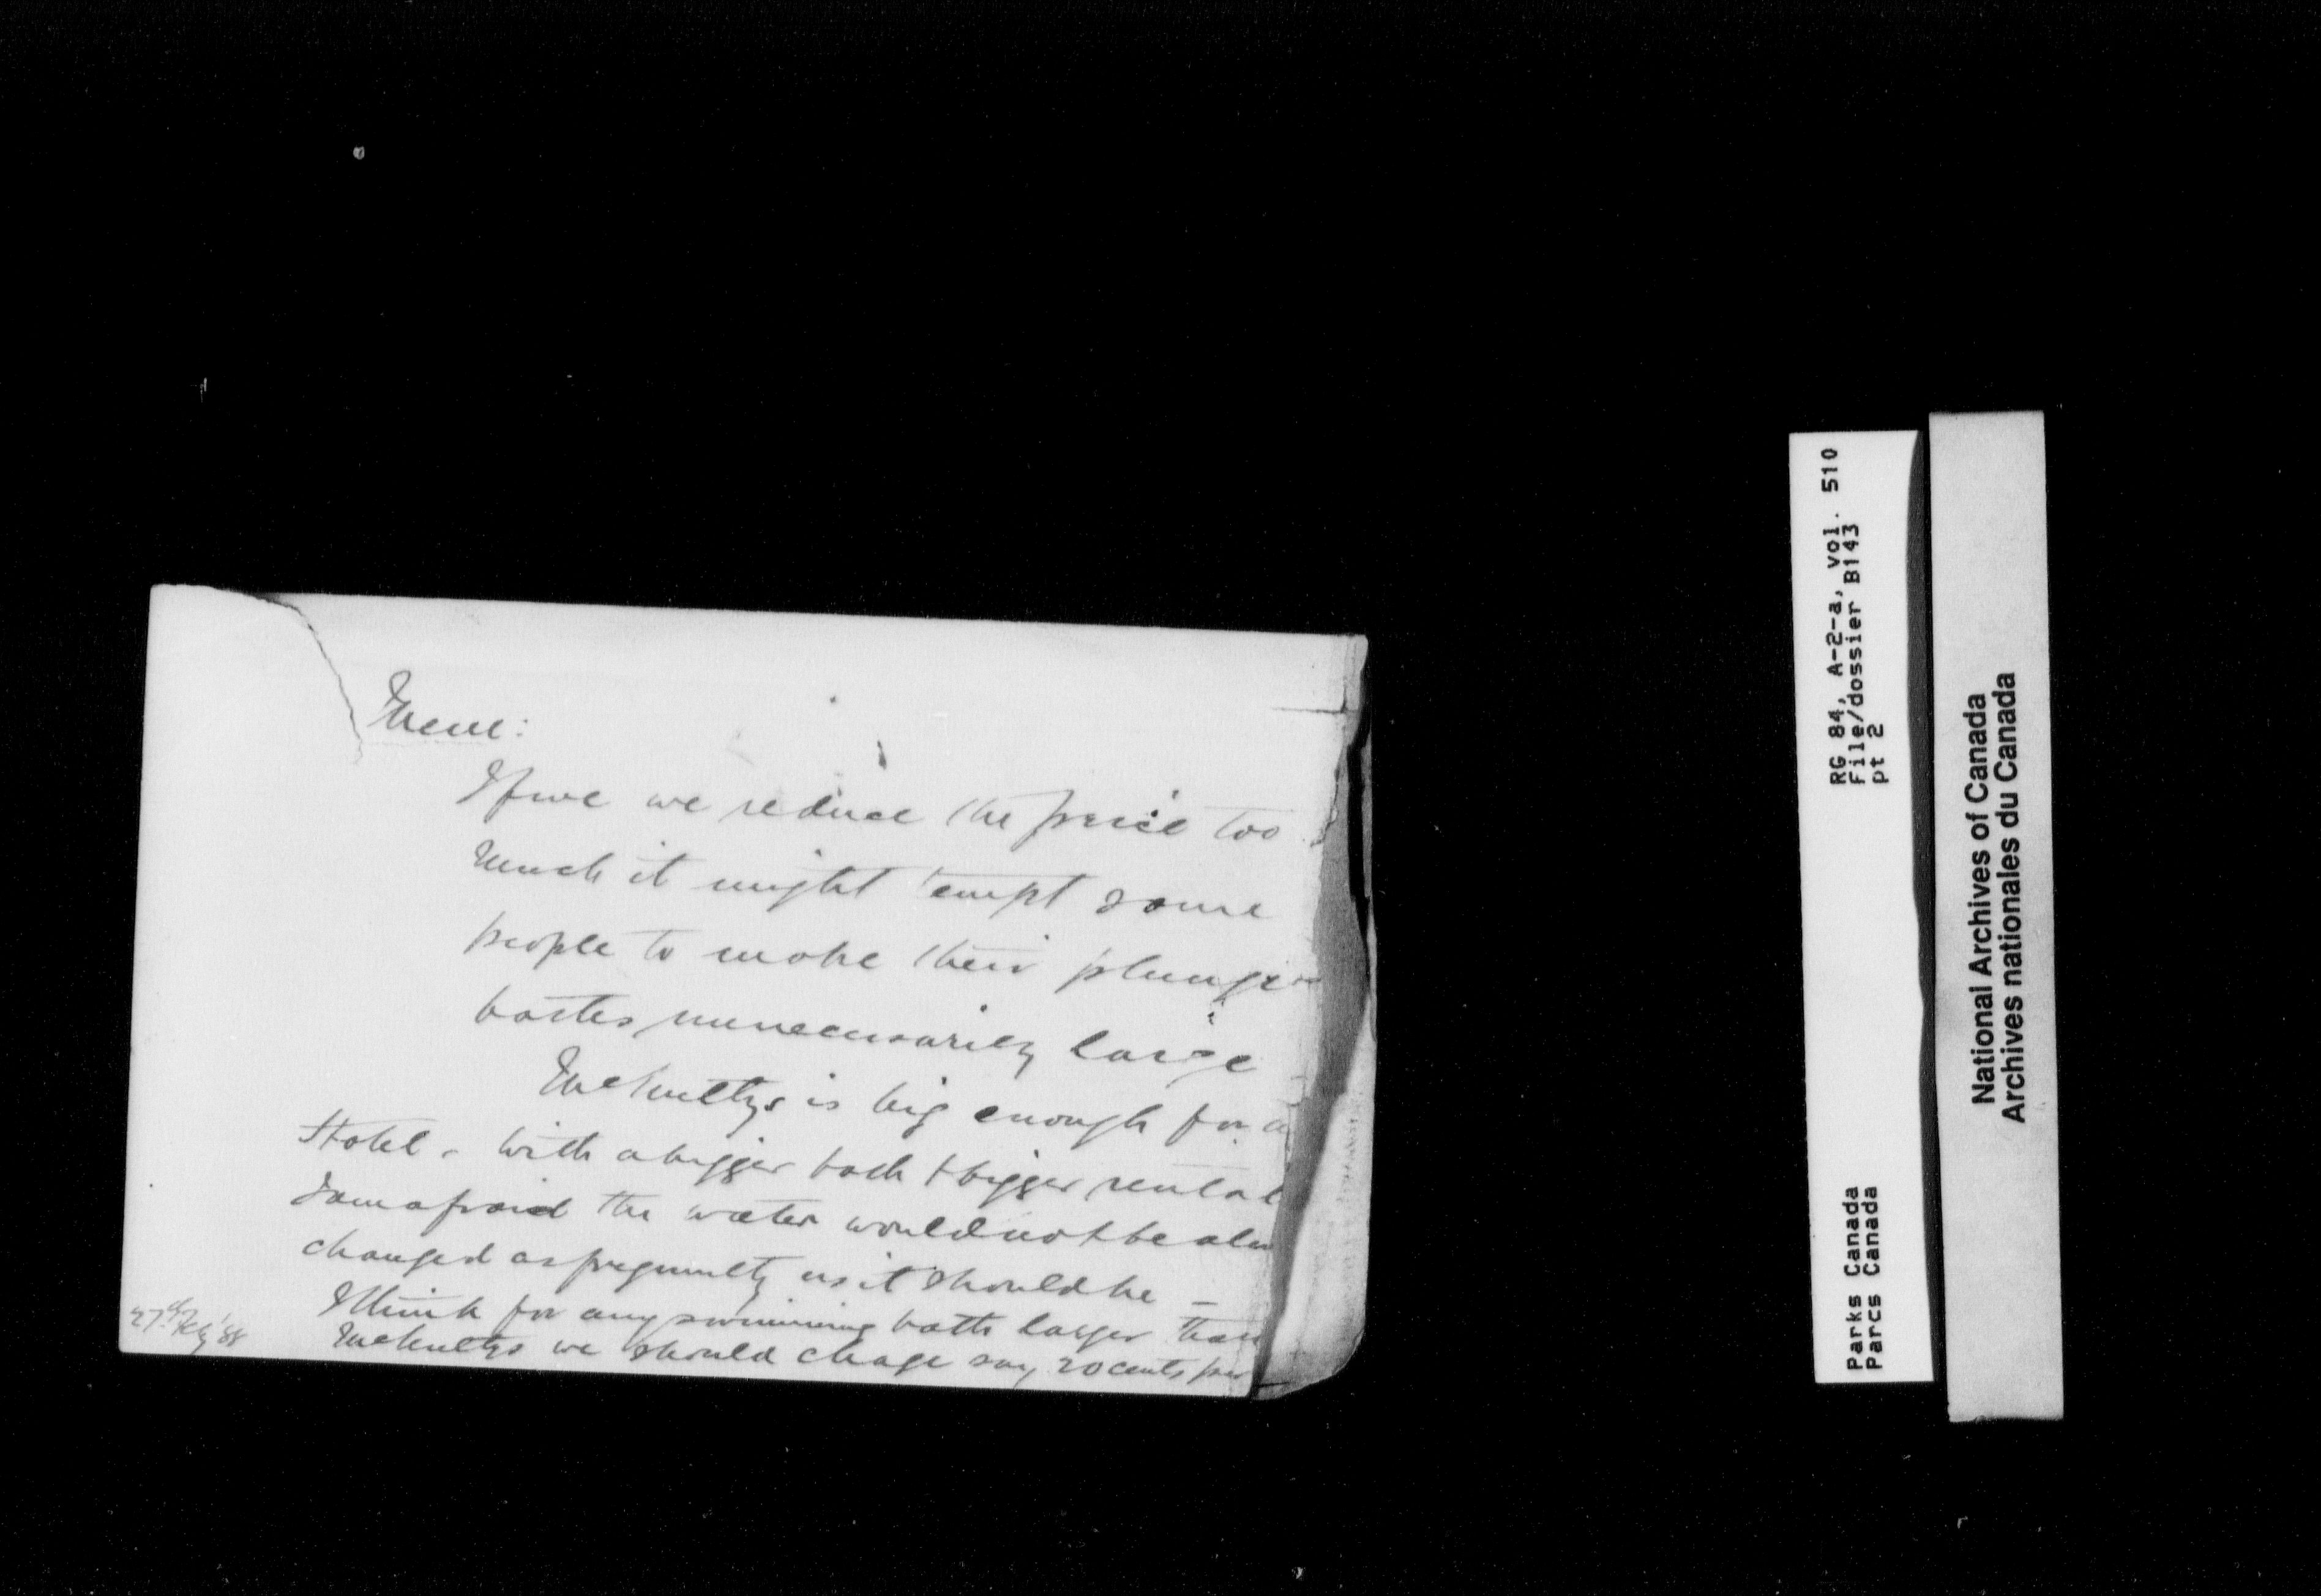 Mem:
If we we reduce the price too
much it might tempt some
people to make their plunge
baths unnecessarily large
McNultys is big enough for a
Hotel. With a bigger bath & bigger rental
I am afraid the water would not be
changed as frequently as it should be –
I think for any swimming bath larger than
McNultys we should charge say 20 cents per
27th Feby '88
RG 84, A-2-a, vol. 510
File/dossier B143
pt 2
Parks Canada
Parcs Canada
National Archives of Canada
Archives nationales du Canada